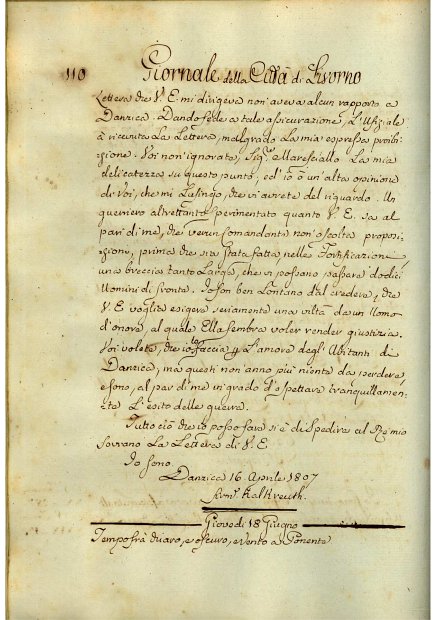 110 Giornale della Città di Livorno
Lettera che V. E. mi dirigeva non aveva alcun rapporto a
Danzica. Dando fede a tale assicurazione, L'Ufiziale
à ricevuta La Lettera, malgrado La mia espressa proibi-
zione. Voi non ignorate, Sig.r Maresciallo La mia
delicatezza su questo punto, ed io ò un'alta opinione
di Voi, che mi Lusingo, che vi avrete del riguardo. Un
guerriero altrettanto sperimentato quanto V. E. sa al
pari di me, che verun Comandante non ascolta propo-
sizioni, prima che sia stata fatta, nelle Fortificazioni
una breccia tanto Larga, che vi possano passare dodici
Uomini di fronte. Io son ben Lontano dal credere, che
V. E. voglia esigere seriamente una viltà da un Uomo
d'onore, al quale Ella sembra voler render giustizia.
Voi volete, che io lo faccia p L'amore degl'Abitanti di
Danzica, ma questi non anno più niente da perdere,
e sono, al par di me in grado d'aspettare tranquillamen-
te L'esito delle guerra.
Tutto ciò che io posso fare si è di spedire al Rè mio
Sovrano La Lettera di V. E.
Io sono
Danzica 16. Aprile 1807
Firm.o Kalkreuth.
Giovedì 18 Giugno
Tempo frà chiaro, e oscuro, e Vento a Ponente